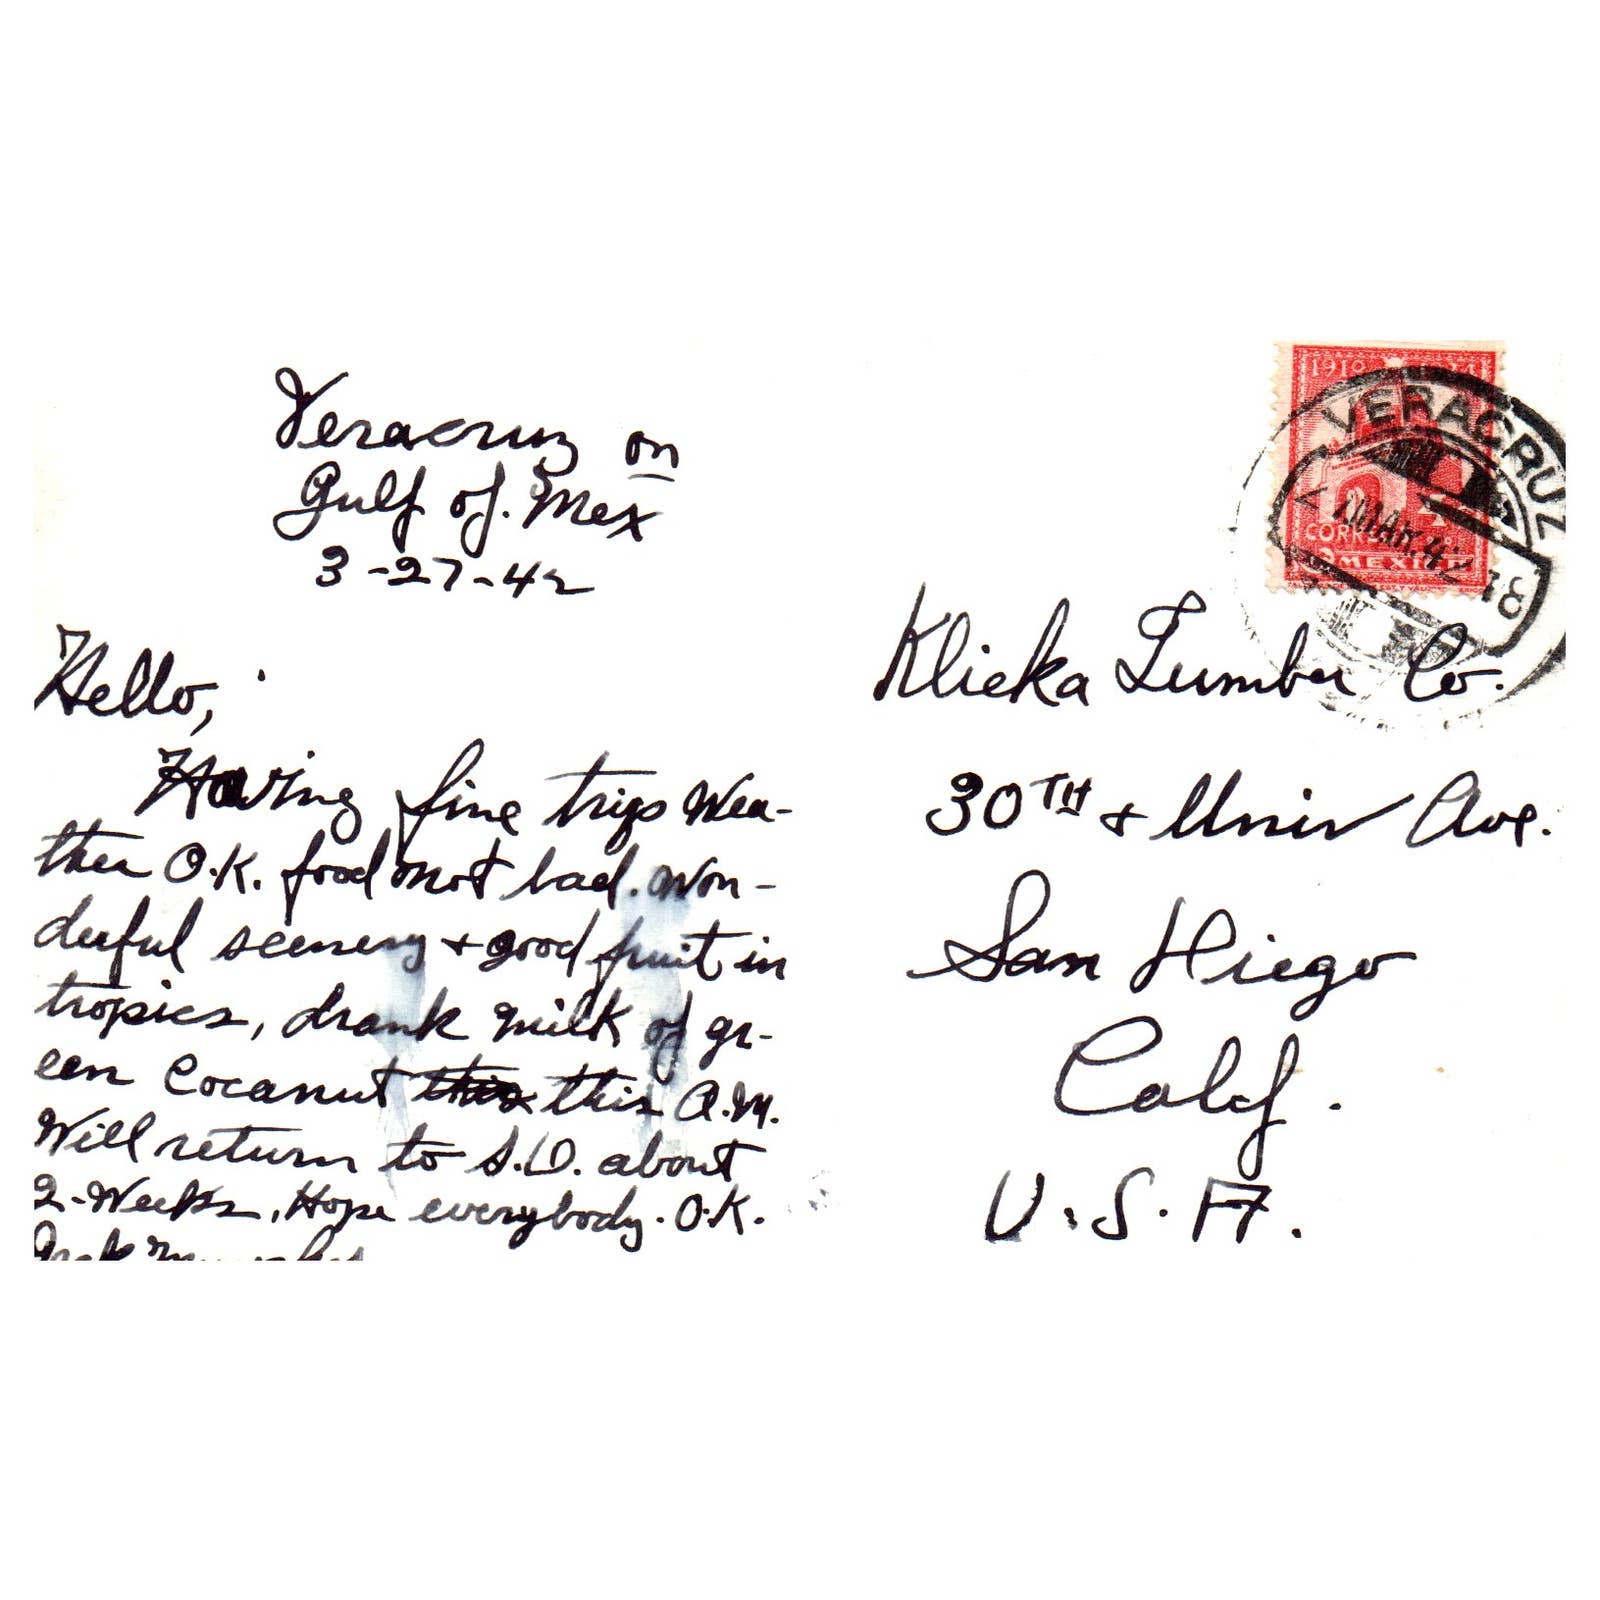 Veracruz on
Gulf of. Mex
3-27-42
Hello,
Having fine trip Wea-
ther O.K. food not bad. Won-
derful scenery + good fruit in
tropics, drank milk of gr-
een Cocanut this this A.M.
Will return to S.D. about
2-Weeks, Hope everybody. O.K.
Jack
1910
VERACRUZ
CORREOS
MEXICO
Klicka Lumber Co.
30TH + Univ Ave.
San Diego
Calif.
U.S.A.